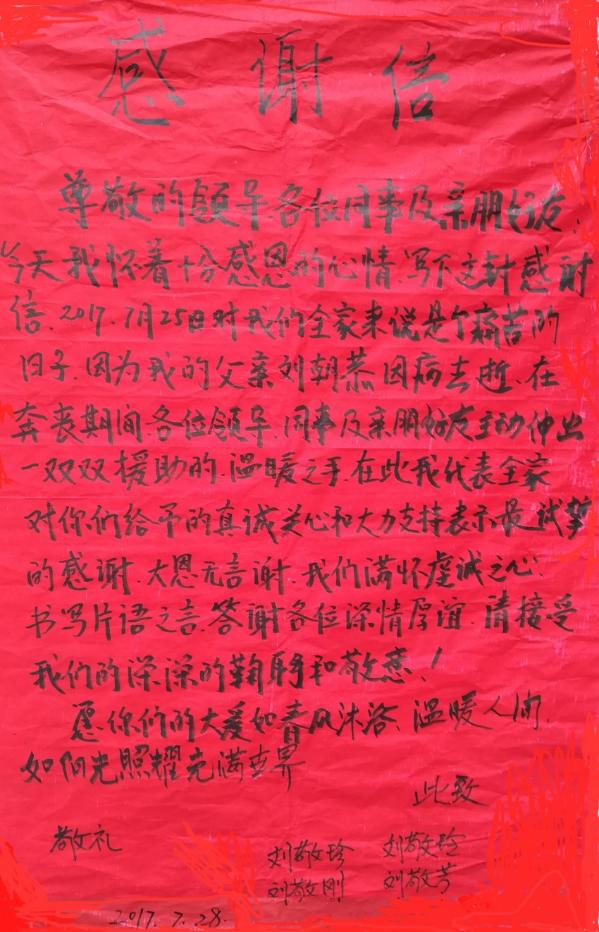 感谢信
尊敬的领导.各位同事及亲朋好友.
今天我怀着十分感恩的心情.写下这封感谢
信.2017.7月25日对我们全家来说是个痛苦的
日子.因为我的父亲刘朝恭因病去逝.在
奔丧期间.各位领导.同事及亲朋好友主动伸出
一双双援助的.温暖之手.在此我代表全家
对你们给予的真诚关心和大力支持表示最诚挚
的感谢.大恩无言谢.我们满怀虔诚之心.
书写片语之言.答谢各位深情厚谊.请接受
我们的深深的鞠躬和敬意!
愿你们的大爱如春风沐浴、温暖人间.
如阳光照耀充满世界
此致
敬礼
刘敬珍 刘敬玲
刘敬刚 刘敬芳
2017.7.28.